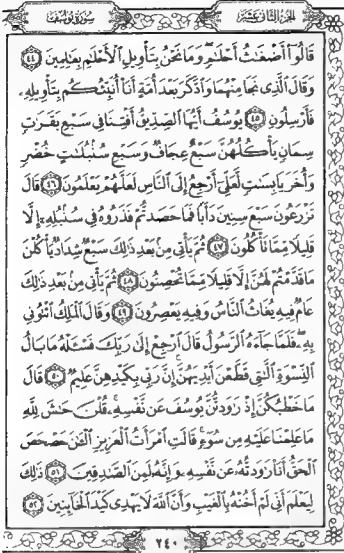 سورة يوسف
الجزء الثاني عشر
قَالُوٓا۟ أَضْغَٰثُ أَحْلَٰمٍ وَمَا نَحْنُ بِتَأْوِيلِ ٱلْأَحْلَٰمِ بِعَٰلِمِينَ ٤٤
وَقَالَ ٱلَّذِى نَجَا مِنْهُمَا وَٱدَّكَرَ بَعْدَ أُمَّةٍ أَنَا۠ أُنَبِّئُكُم بِتَأْوِيلِهِۦ
فَأَرْسِلُونِ ٤٥ يُوسُفُ أَيُّهَا ٱلصِّدِّيقُ أَفْتِنَا فِى سَبْعِ بَقَرَٰتٍ
سِمَانٍ يَأْكُلُهُنَّ سَبْعٌ عِجَافٌ وَسَبْعِ سُنۢبُلَٰتٍ خُضْرٍ
وَأُخَرَ يَابِسَٰتٍ لَّعَلِّىٓ أَرْجِعُ إِلَى ٱلنَّاسِ لَعَلَّهُمْ يَعْلَمُونَ ٤٦ قَالَ
تَزْرَعُونَ سَبْعَ سِنِينَ دَأَبًا فَمَا حَصَدتُّمْ فَذَرُوهُ فِى سُنۢبُلِهِۦٓ إِلَّا
قَلِيلًا مِّمَّا تَأْكُلُونَ ٤٧ ثُمَّ يَأْتِى مِنۢ بَعْدِ ذَٰلِكَ سَبْعٌ شِدَادٌ يَأْكُلْنَ
مَا قَدَّمْتُمْ لَهُنَّ إِلَّا قَلِيلًا مِّمَّا تُحْصِنُونَ ٤٨ ثُمَّ يَأْتِى مِنۢ بَعْدِ ذَٰلِكَ
عَامٌ فِيهِ يُغَاثُ ٱلنَّاسُ وَفِيهِ يَعْصِرُونَ ٤٩ وَقَالَ ٱلْمَلِكُ ٱئْتُونِى
بِهِۦ فَلَمَّا جَآءَهُ ٱلرَّسُولُ قَالَ ٱرْجِعْ إِلَىٰ رَبِّكَ فَسْـَٔلْهُ مَا بَالُ
ٱلنِّسْوَةِ ٱلَّٰتِى قَطَّعْنَ أَيْدِيَهُنَّ إِنَّ رَبِّى بِكَيْدِهِنَّ عَلِيمٌ ٥٠ قَالَ
مَا خَطْبُكُنَّ إِذْ رَٰوَدتُّنَّ يُوسُفَ عَن نَّفْسِهِۦ قُلْنَ حَٰشَ لِلَّهِ
مَا عَلِمْنَا عَلَيْهِ مِن سُوٓءٍ قَالَتِ ٱمْرَأَتُ ٱلْعَزِيزِ ٱلْـَٰٔنَ حَصْحَصَ
ٱلْحَقُّ أَنَا۠ رَٰوَدتُّهُۥ عَن نَّفْسِهِۦ وَإِنَّهُۥ لَمِنَ ٱلصَّٰدِقِينَ ٥١ ذَٰلِكَ
لِيَعْلَمَ أَنِّى لَمْ أَخُنْهُ بِٱلْغَيْبِ وَأَنَّ ٱللَّهَ لَا يَهْدِى كَيْدَ ٱلْخَآئِنِينَ ٥٢
٢٤٠